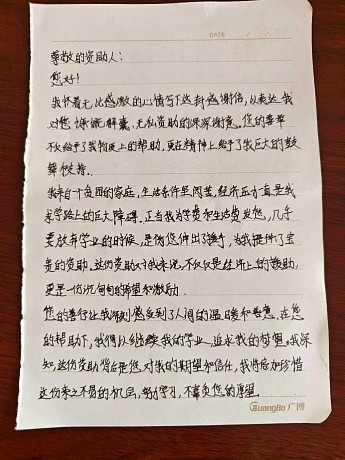 DATE / /
尊敬的资助人:
您好!
我怀着无比感激的心情写下这封感谢信,以表达我
对您慷慨解囊、无私资助的深深谢意。您的善举
不仅给予了我物质上的帮助,更在精神上给予了我巨大的鼓
舞和支持。
我来自一个贫困的家庭,生活条件艰苦,经济压力一直是我
求学路上的巨大障碍。正当我为学费和生活费发愁,几乎
要放弃学业的时候,是您伸出了援手,为我提供了宝
贵的资助。这份资助对我来说,不仅仅是经济上的援助,
更是一份沉甸甸的希望和激励。
您的善行让我深刻感受到了人间的温暖和善意。在您
的帮助下,我得以继续我的学业,追求我的梦想。我深
知,这份资助背后是您对我的期望和信任,我将倍加珍惜
这份来之不易的机会,努力学习,不辜负您的厚望
GuangBo 广博